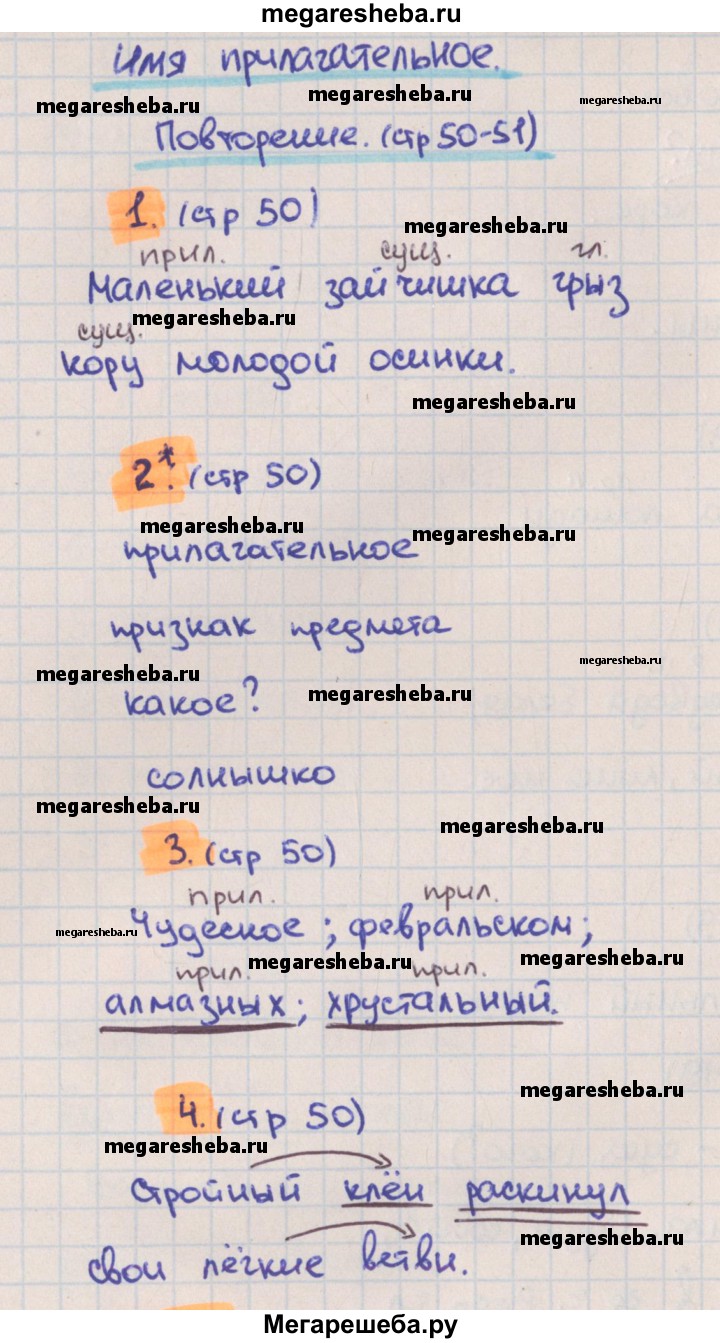 megaresheba.ru
Имя прилагательное.
megaresheba.ru megaresheba.ru megaresheba.ru
Повторение. (стр 50-51)
1. (стр 50)
megaresheba.ru
прил. сущ. гл.
Маленький зайчишка грыз
megaresheba.ru
сущ.
кору молодой осинки.
megaresheba.ru
2*. (стр 50)
megaresheba.ru megaresheba.ru
прилагательное
признак предмета
megaresheba.ru megaresheba.ru megaresheba.ru
какое?
солнышко
megaresheba.ru megaresheba.ru
3. (стр 50)
прил. прил.
Чудесное; февральском;
megaresheba.ru megaresheba.ru megaresheba.ru
прил. прил.
алмазных; хрустальный.
megaresheba.ru
4. (стр 50)
megaresheba.ru
Стройный клён раскинул
megaresheba.ru
свои лёгкие ветви.
Мегарешеба.ру